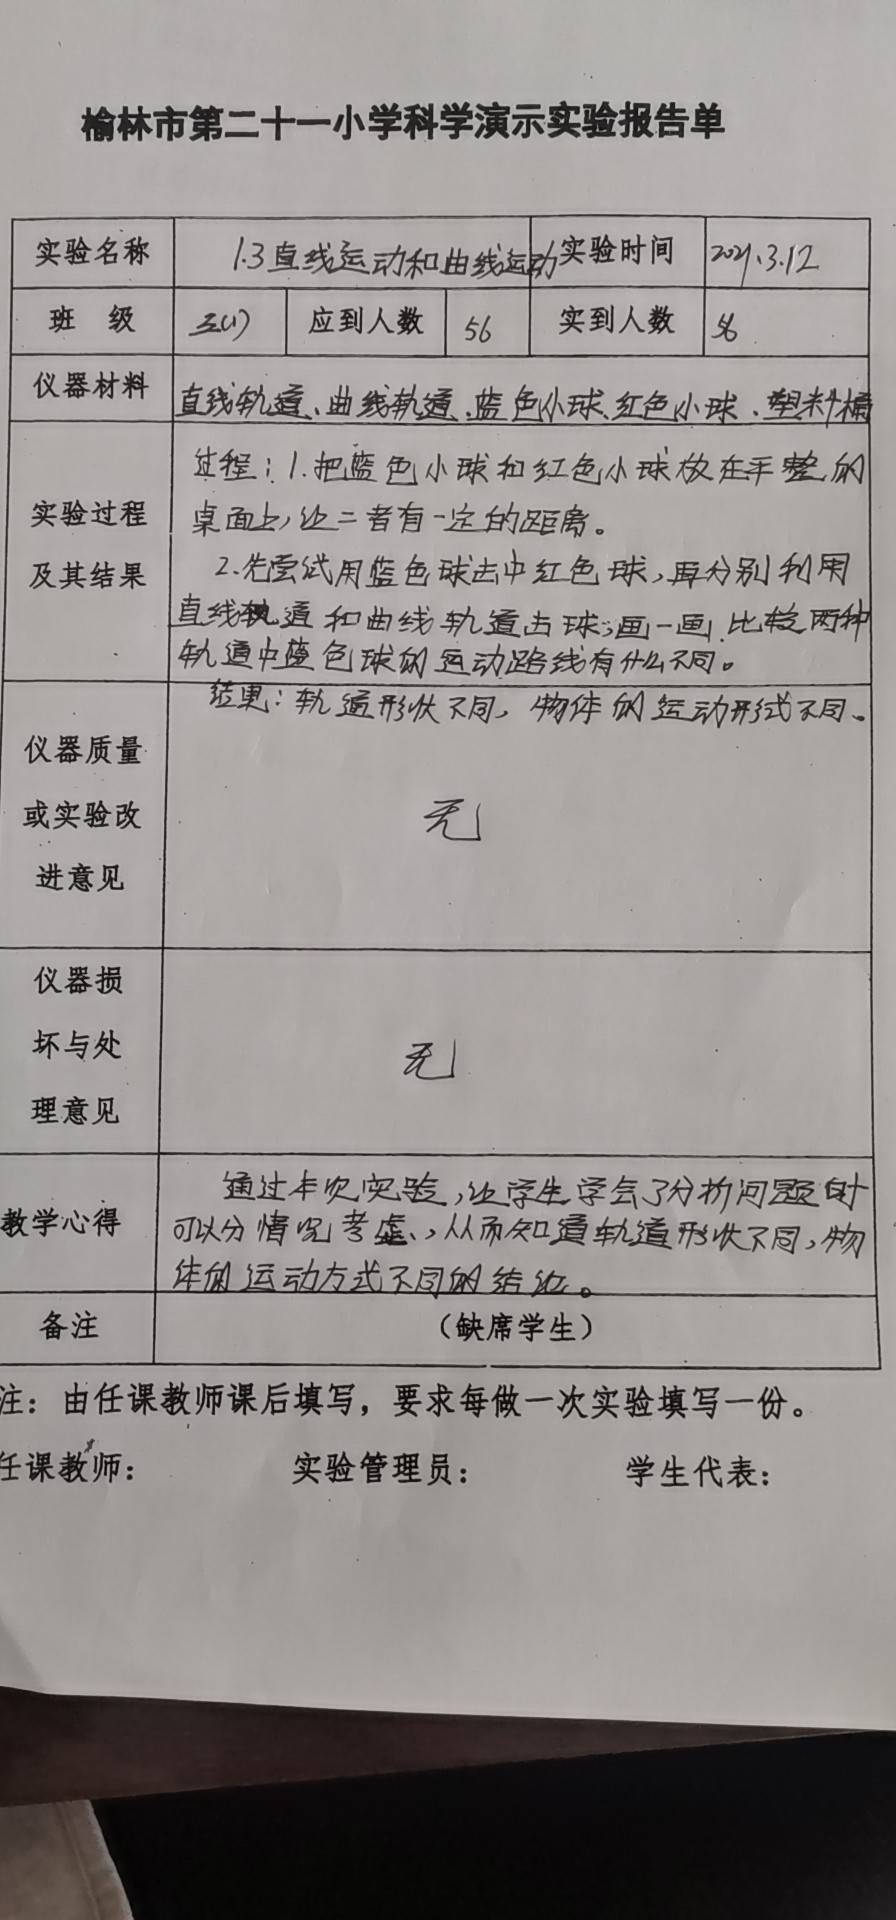 榆林市第二十一小学科学演示实验报告单
实验名称 1.3直线运动和曲线运动 实验时间 2021.3.12
班 级 三(1) 应到人数 56 实到人数 56
仪器材料 直线轨道、曲线轨道、蓝色小球、红色小球、塑料桶
过程：1.把蓝色小球和红色小球放在平整的
实验过程 桌面上，让二者有一定的距离。
及其结果 2.先尝试用蓝色球击中红色球，再分别利用
直线轨道和曲线轨道击球；画一画，比较两种
轨道中蓝色球的运动路线有什么不同。
结果：轨道形状不同，物体的运动形式不同。
仪器质量
或实验改 无
进意见
仪器损
坏与处 无
理意见
通过本次实验，让学生学会了分析问题时
教学心得 可以分情况考虑、，从而知道轨道形状不同，物
体的运动方式不同的结论。
备注 （缺席学生）
注：由任课教师课后填写，要求每做一次实验填写一份。
任课教师： 实验管理员： 学生代表：